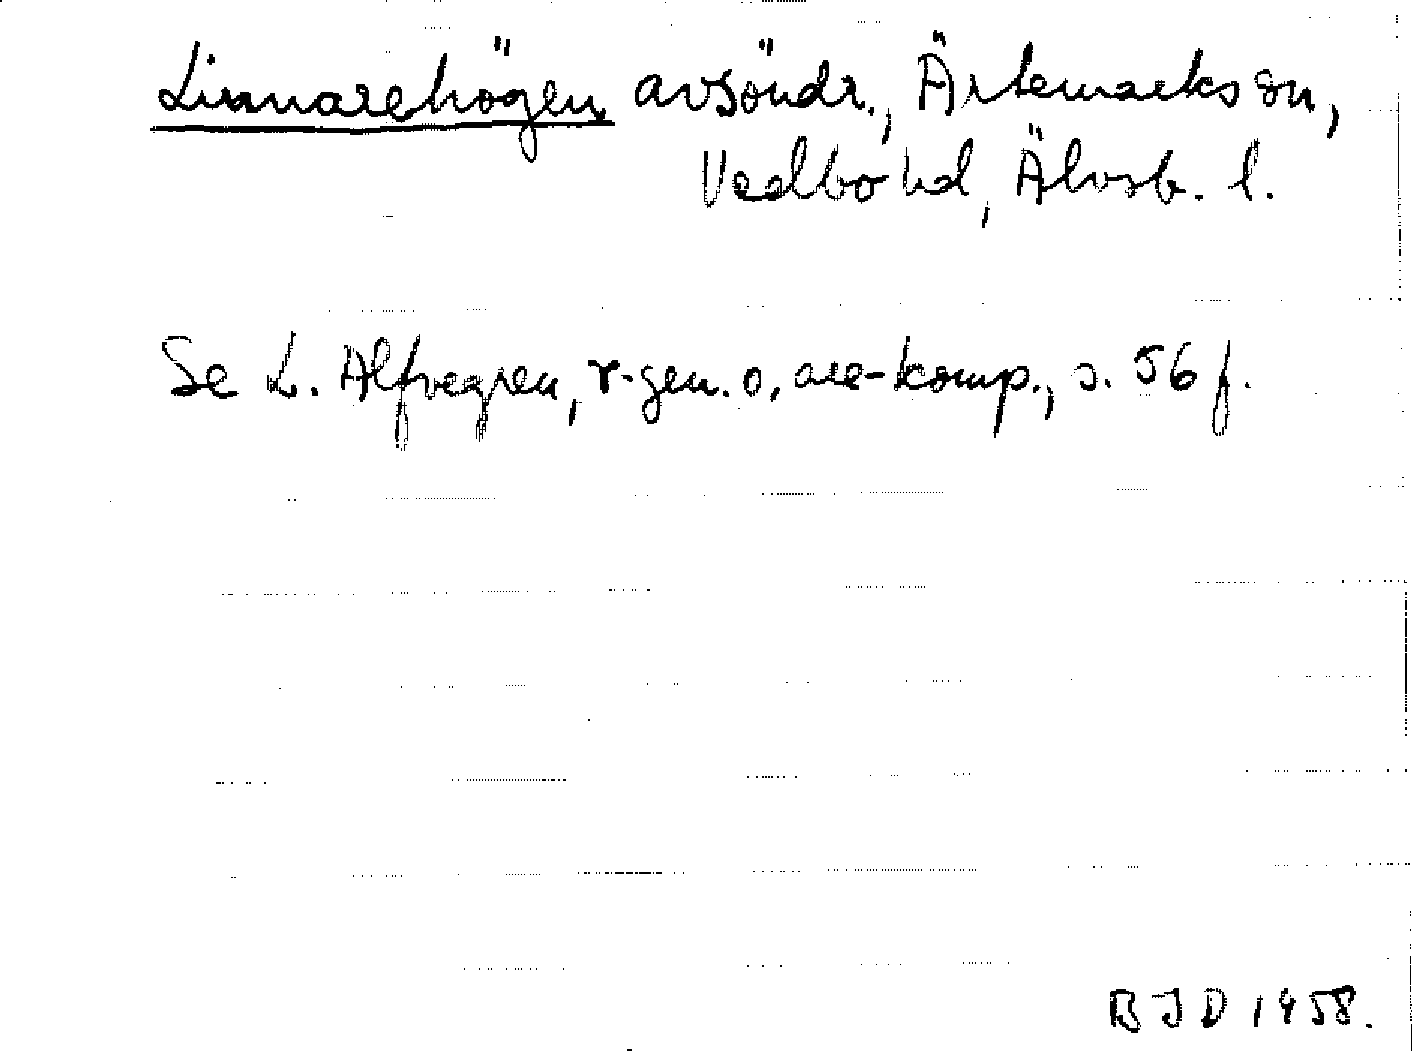 Linnarehögen avsöndr., Ärtemarks sn,
Vedbo hd, Älvsb. l.
Se L. Alfvegren, r-gen. o. are-komp., s. 56 f.
BJD 1958.